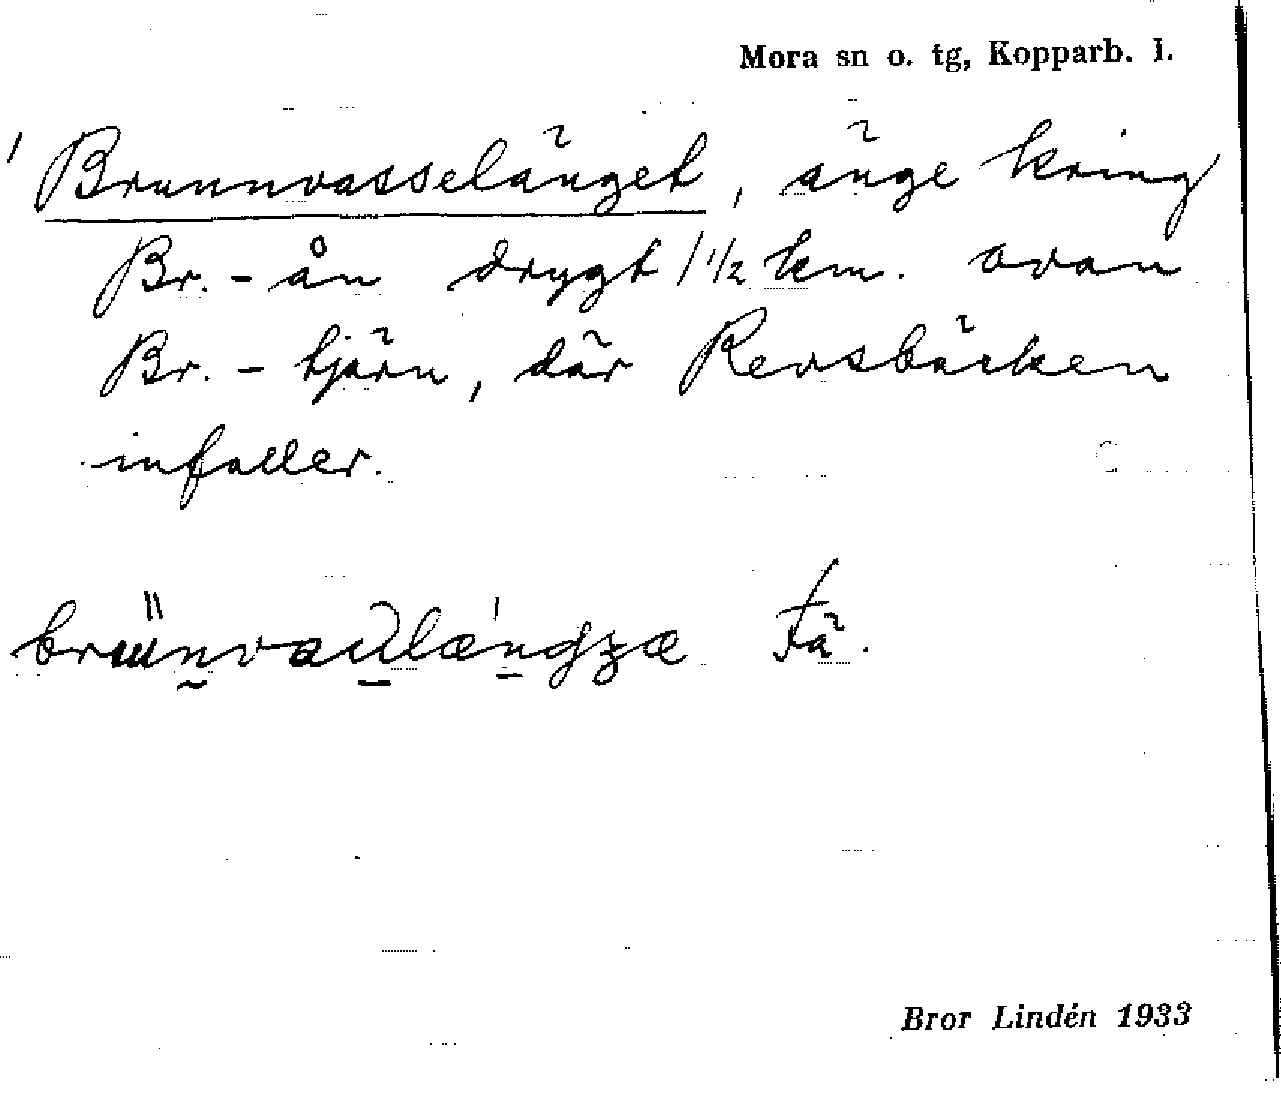 Mora sn o. tg, Kopparb. l.
Brunnvasselänget, änge kring
Br.-ån drygt 1 1/2 km. ovan
Br.-tjärn, där Revsbäcken
infaller.
Fä.
Bror Lindén 1933